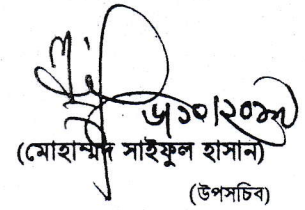 ৬/১০/২০
(মোহাম্মদ সাইফুল হাসান)
(উপসচিব)